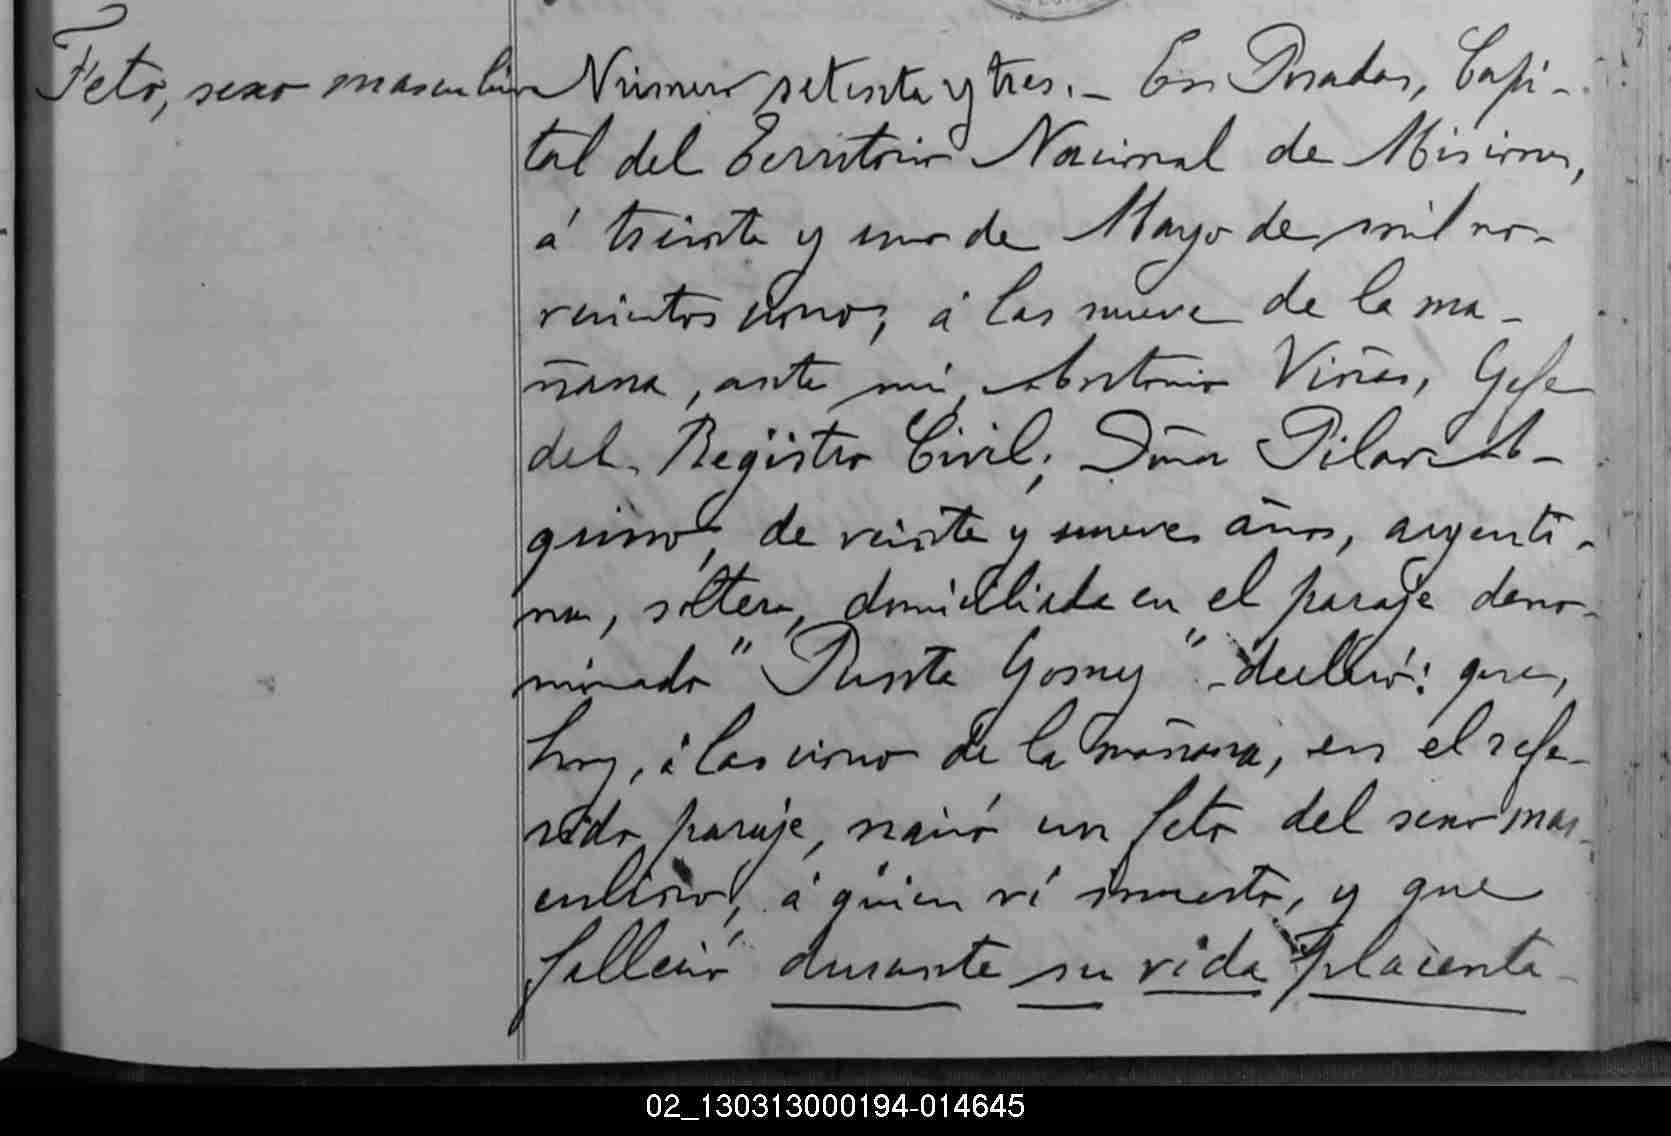 Feto, sexo masculino
Número setenta y tres.— En Posadas, Capi-
tal del Territorio Nacional de Misiones,
á treinta y uno de Mayo de mil no-
vecientos uno, á las nueve de la ma-
ñana, ante mi, Antonio Viñas, Gefe
del Registro Civil; Doña Pilar A-
quino, de veinte y nueve años, argenti-
na, soltera, domiciliada en el paraje deno-
minado "Punta Gomez" declaró: que,
hoy, á las cinco de la mañana, en el refe-
rido paraje, nació un feto del sexo mas-
culino, á quien ví muerto, y que
falleció durante su vida placenta-
02_130313000194-014645